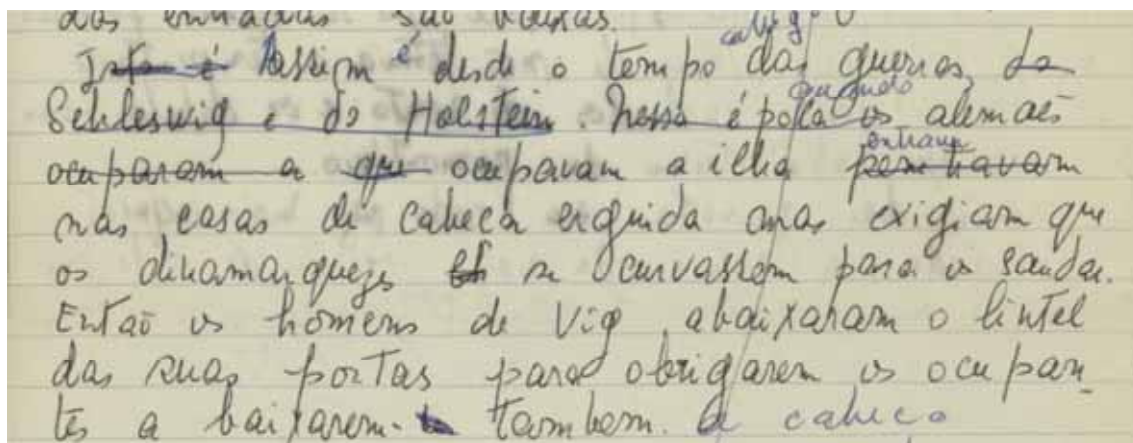 das entradas são baixas.
Isto é Assim é desde o tempo das antigas guerras, do
Schleswig e do Holstein. Nessa época quando os alemães
ocuparam a que ocupavam a ilha entravam penetravam
nas casas de cabeça erguida mas exigiam que
os dinamarqueses se curvassem para os saudar.
Então os homens de Vig abaixaram o lintel
das suas portas para obrigarem os ocupan-
tes a baixarem também a cabeça